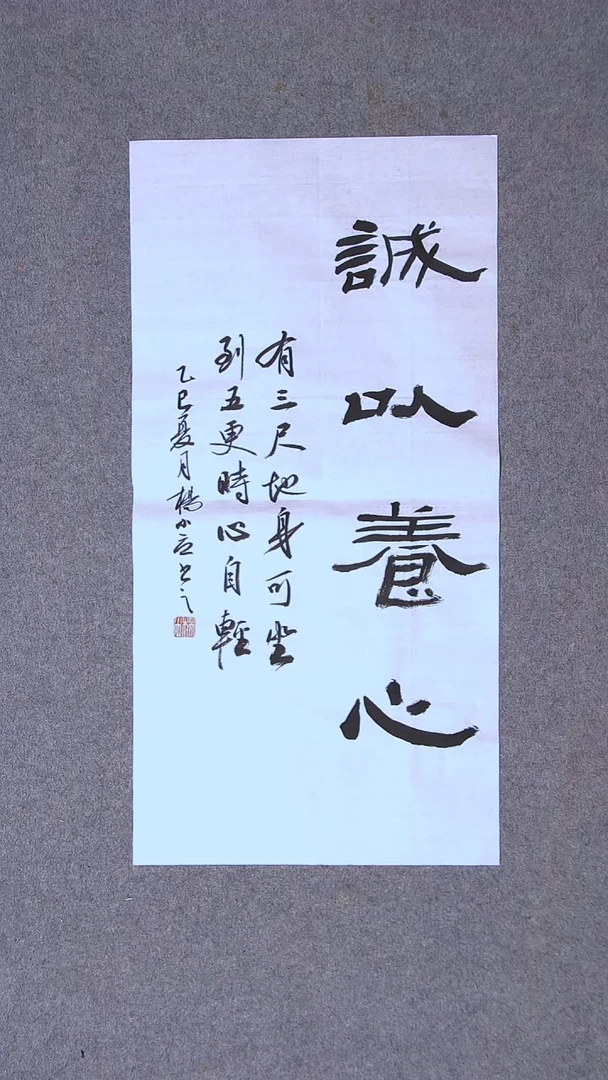 誠以養心
有三尺地身可坐
到五更時心自輕
乙巳夏月楊小立書之